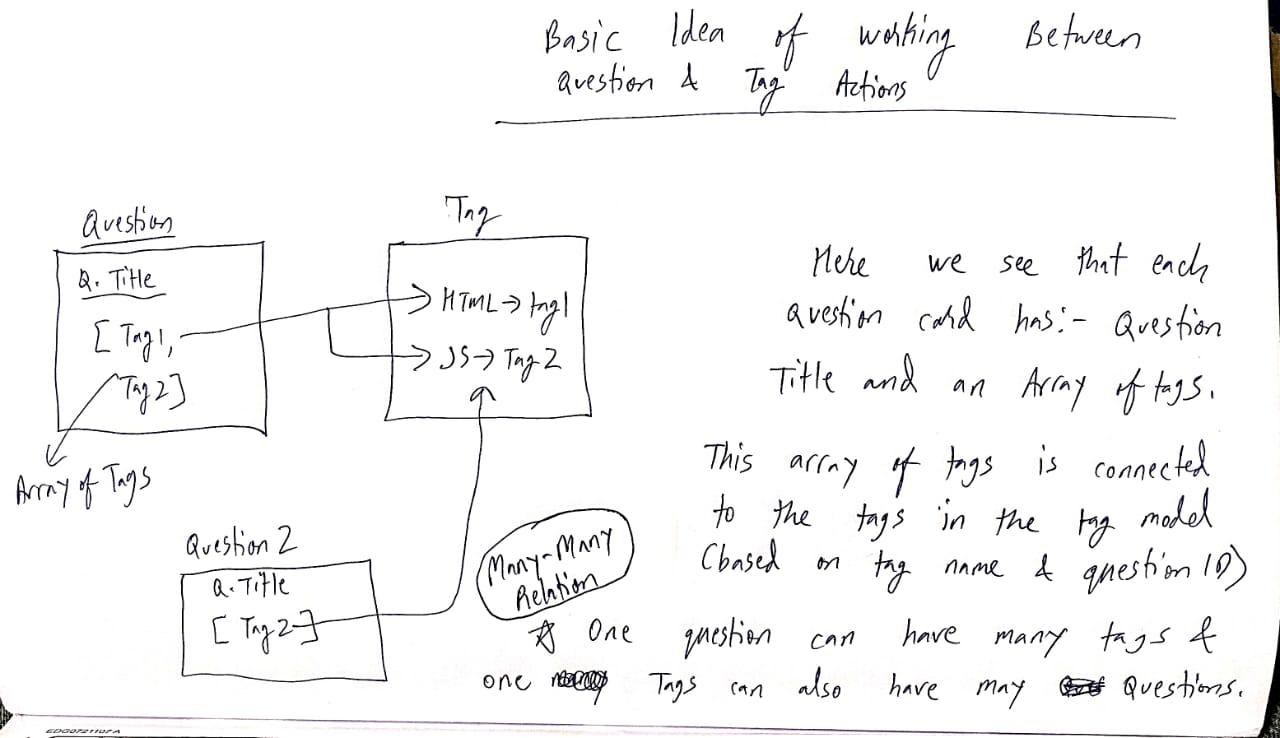 Basic Idea of working Between
Question & Tag Actions
Question
Q. Title
[ Tag1,
Tag2]
Array of Tags
Tag
HTML → tag1
JS → Tag 2
Question 2
Q. Title
[ Tag 2 ]
Many-Many
Relation
Here we see that each
Question card has:- Question
Title and an Array of tags.
This array of tags is connected
to the tags in the tag model
(based on tag name & question ID)
☆ One question can have many tags &
one Tags can also have may Questions.
EDG0721107A